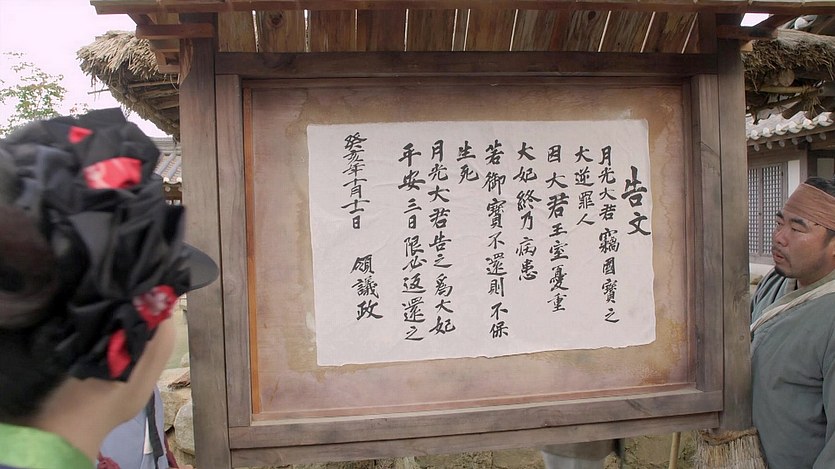 告文
月光大君竊國寶之
大逆罪人
因大君王室憂重
大妃終乃病患
若御寶不還則不保
生死
月光大君告之爲大妃
平安三日限必返還之
癸亥年十月十二日
領議政